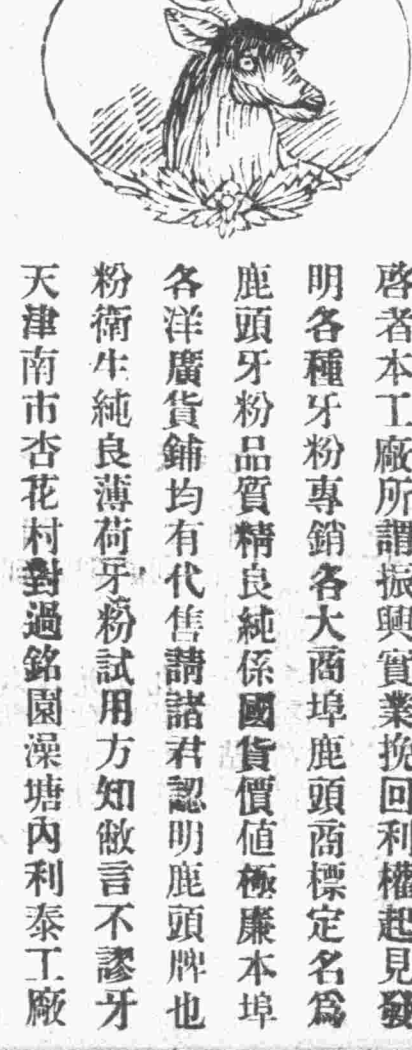 啓者本工廠所謂振興實業挽回利權起見發
明各種牙粉專銷各大商埠鹿頭商標定名爲
鹿頭牙粉品質精良純係國貨價值極廉本埠
各洋廣貨鋪均有代售請諸君認明鹿頭牌也
粉衛生純良薄荷牙粉試用方知敝言不謬牙
天津南市杏花村對過銘園澡塘內利泰工廠